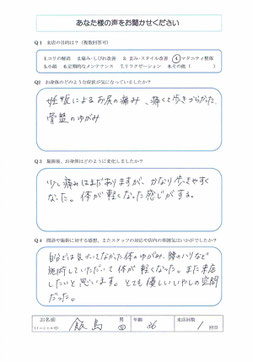 あなた様の声をお聞かせください
Q1 来店の目的は？（複数回答可）
1.コリの解消 2.痛み・しびれ改善 3.歪み・スタイル改善 4.マタニティ整体
5.小顔 6.定期的なメンテナンス 7.リラクゼーション 8.その他（ ）
Q2 お身体のどのような症状が気になっていましたか？
妊娠によるお尻の痛み、痛くて歩きづらかった
骨盤のゆがみ
Q3 施術後、お身体はどのように変化しましたか？
少し痛みはまだありますが、かなり歩きやすく
なった。体が軽くなった感じがする。
Q4 問診や施術に対する感想、またスタッフの対応や店内の雰囲気はいかがでしたか？
自分では気づいてなかった体のゆがみ、腰のハリなど
施術していただいて体が軽くなった。また来店
したいと思います。とても優しいいやしの空間
だった。
お名前 飯島 男 女 年齢 26 来店回数 1 回目